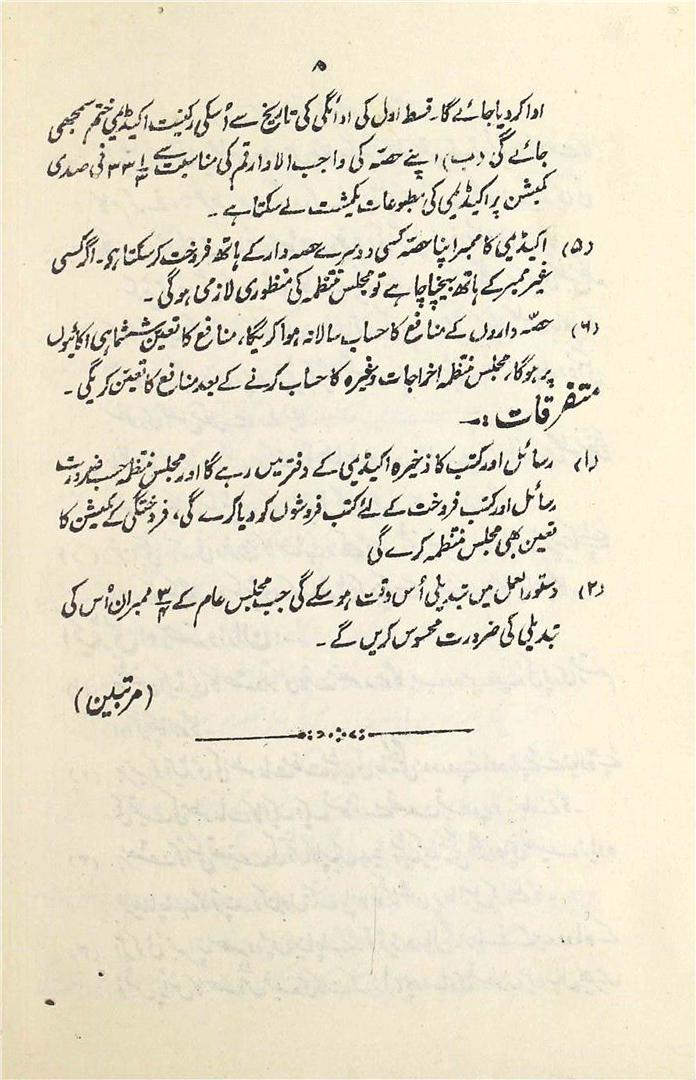 ۸
ادا کر دیا جائے گا۔ قسط اول کی ادائگی کی تاریخ سے اُسکی رکنیت اکیڈیمی ختم سمجھی
جائے گی (ب) اپنے حصّہ کی واجب الادا رقم کی مناسبت سے ۳۳ ۱/۳ فی صدی
کمیشن پر اکیڈیمی کی مطبوعات یکمشت لے سکتا ہے۔
(۵) اکیڈیمی کا ممبر اپنا حصّہ کسی دوسرے حصہ دار کے ہاتھ فروخت کر سکتا ہو۔ اگر کسی
غیر ممبر کے ہاتھ بیچنا چاہے تو مجلس منتظمہ کی منظوری لازمی ہوگی۔
(۶) حصّہ داروں کے منافع کا حساب سالانہ ہوا کریگا، منافع کا تعین ششماہی اکائیوں
پر ہوگا، مجلس منتظمہ اخراجات وغیرہ کا حساب کرنے کے بعد منافع کا تعیّن کریگی۔
متفرقات :۔
(۱) رسائل اور کتب کا ذخیرہ اکیڈیمی کے دفتر میں رہے گا اور مجلس منتظمہ حسب ضرورت
رسائل اور کتب فروخت کے لئے کتب فروشوں کو دیا کرے گی، فروختگی کے کمیشن کا
تعین بھی مجلس منتظمہ کرے گی
(۲) دستور العمل میں تبدیلی اُس وقت ہو سکے گی جب مجلس عام کے ۳/۴ ممبران اُس کی
تبدیلی کی ضرورت محسوس کریں گے۔
(مرتبین)